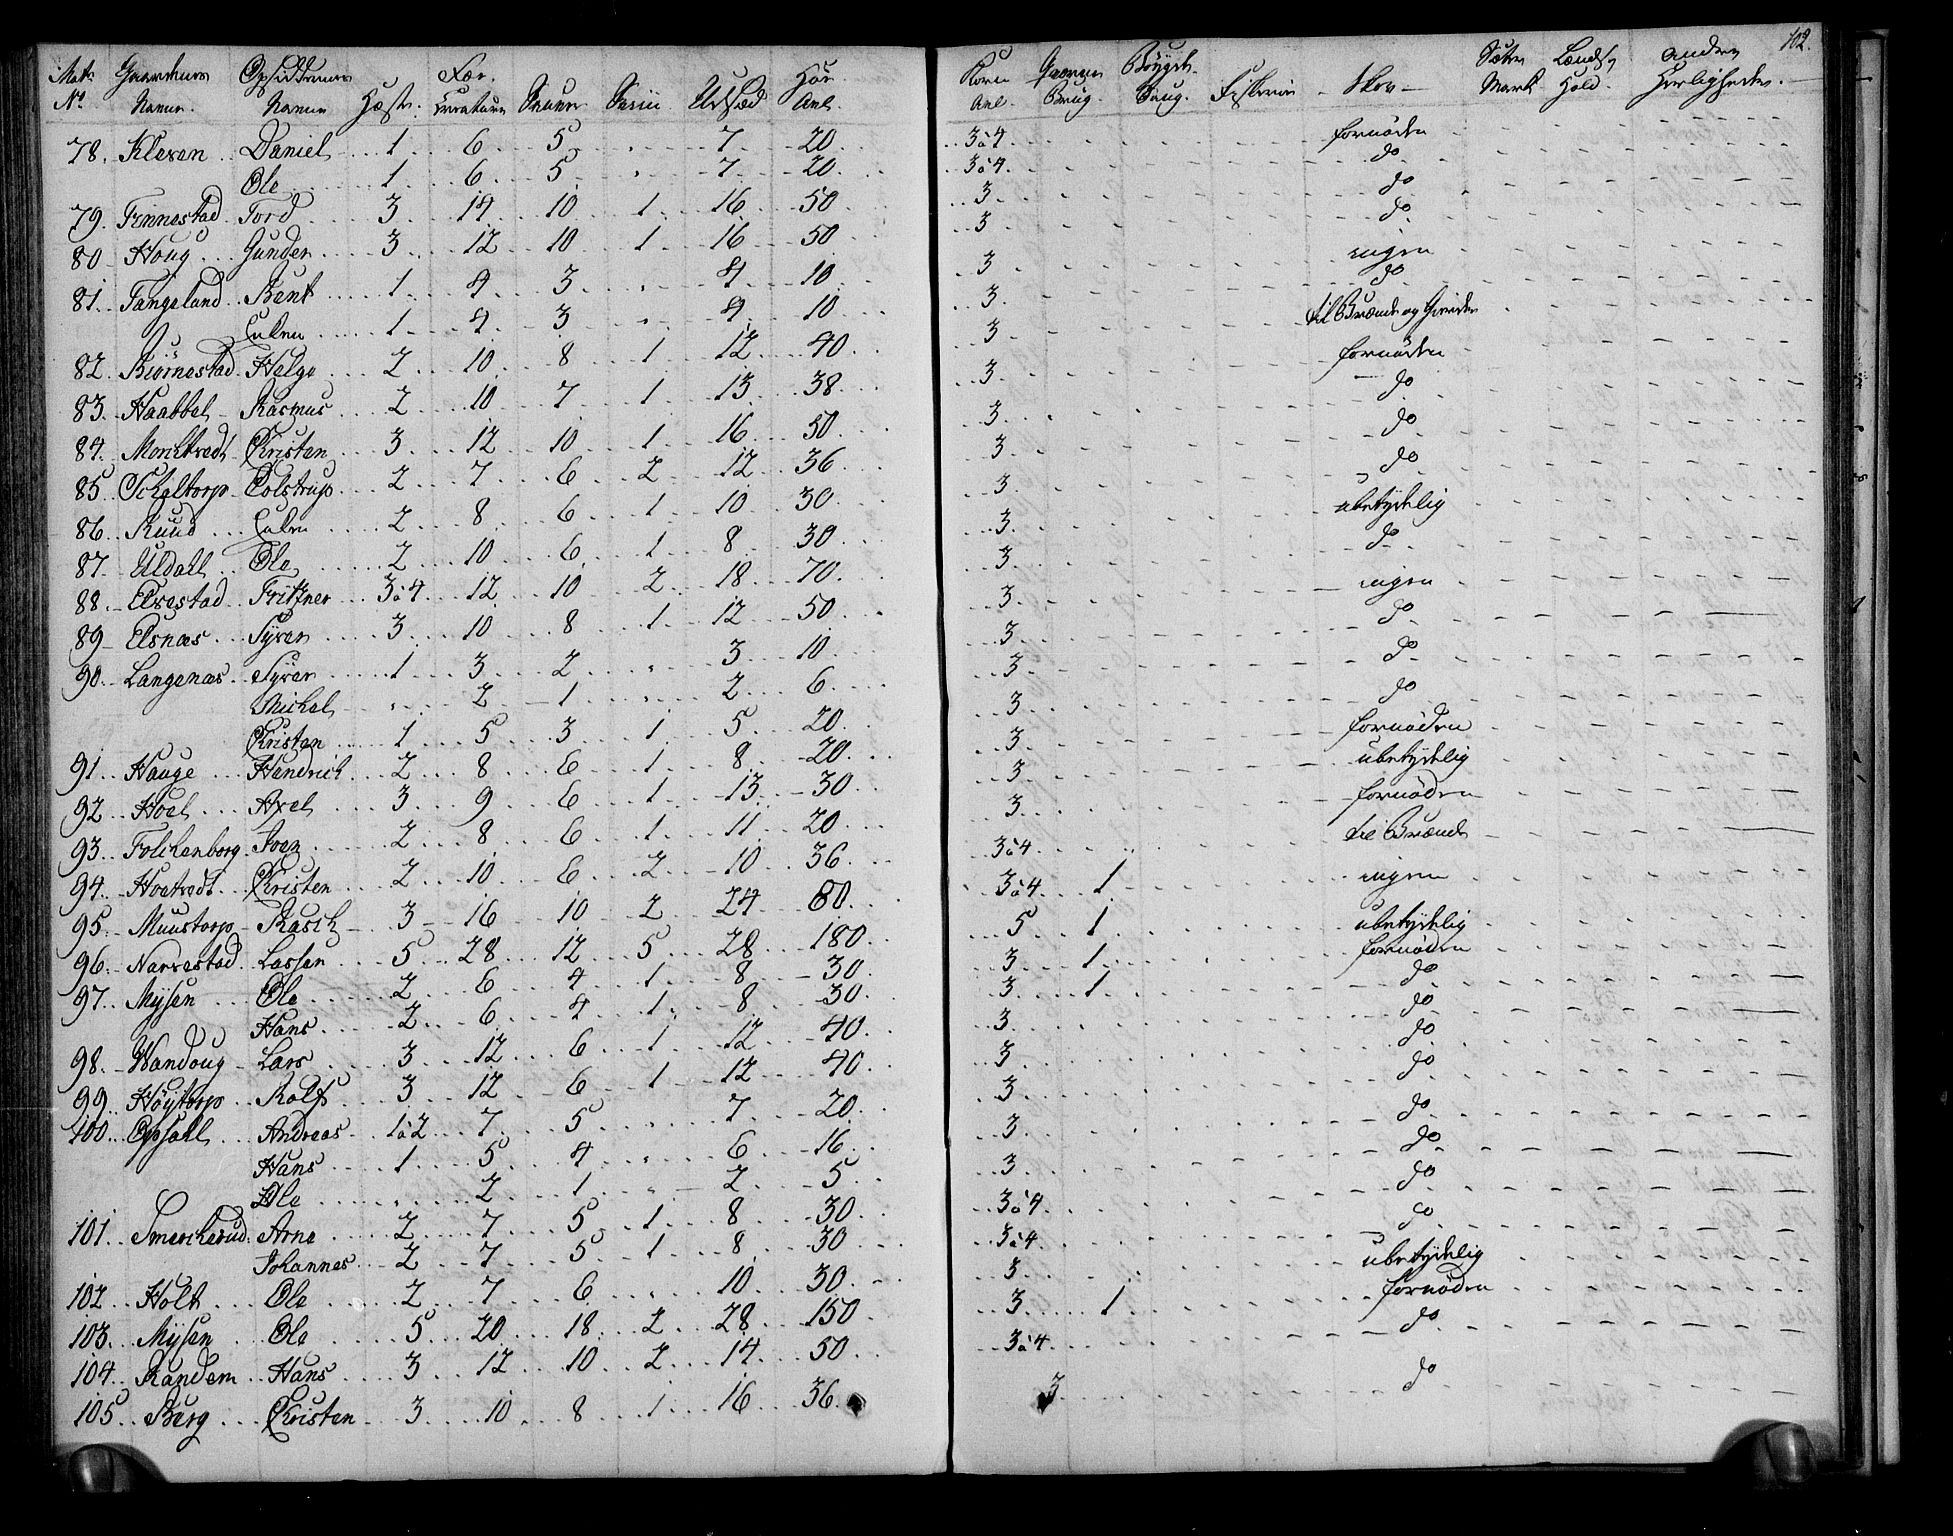 102.
Matr: Gaardenes Opsiddernes Fæe- Høe Korn Qværne Bøygde Sæter Lands Andre
No Navne. Navne Hæste. Creature Svin Udsæd Aul. Aul. Brug. Saug. Fiskerie Skov Mark Hold. Herligheder.
78. Kleven Daniel 1 6 5 " 7 20 3 à 4 fornøden
Ole 1 6 5 " 7 20 3 à 4 do
79. Finnestad Tord 3 14 10 1 16 50 3 do
80 Houg Gunder 3 12 10 1 16 50 3 do
81. Tangeland Bent 1 4 3 " 4 10 3 ingen
Enken 1 4 3 " 4 10 3 do
82. Biørnestad Helge 2 10 8 1 12 40 3 til Brænde og Gierder
83. Haabbel Rasmus 2 10 7 1 13 38 3 fornøden
84. Monchtredt Christen 3 12 10 1 16 50 3 do
85. Schaltorp Colstrup 2 7 6 2 12 36 3 do
86. Ruud Enken 2 8 6 1 10 30 3 do
87. Uldall Ole 2 10 6 1 8 30 3 ubetydelig
88. Elvestad Frittzner 3 à 4 12 10 2 18 70 3 do
89 Elsnæs Syver 3 10 8 1 12 50 3 ingen
90. Langenæs Syver 1 3 2 " 3 10 3 do
Michel " 2 1 " 2 6 3 do
Christen 1 5 3 1 5 20 3 do
91. Hauge Hendrich 2 8 6 1 8 20 3 fornøden
92. Hoel Axel 3 9 6 1 13 30 3 ubetydelig
93. Folckenborg Iver 2 8 6 1 11 20 3 fornøden
94. Hoetvedt Christen 2 10 6 2 10 36 3 à 4 til Brænde
95. Muustorp Rasch 3 16 10 2 24 80 3 à 4 1 ingen
96. Narvestad Lassen 5 28 12 5 28 180 5 1 ubetydelig
97. Mysen Ole 2 6 4 1 8 30 3 1 fornøden
Hans 2 6 4 1 8 30 3 1 do
98. Wandoug Lars 3 12 6 1 12 40 3 do
99. Høytorp Rolf 3 12 6 1 12 40 3 do
100. Opsall Andreas 1 à 2 7 5 " 7 20 3 do
Hans 1 5 4 " 6 16 3 do
Ole " 2 1 " 2 5 3 do
101. Smercherud Arne 2 7 5 1 8 30 3 à 4 do
Johannes 2 7 5 1 8 30 3 à 4 do
102. Holt Ole 2 7 6 " 10 30 3 ubetydelig
103. Mysen Ole 5 20 18 2 28 150 3 1 fornøden
104. Randem Hans 3 12 10 2 14 50 3 à 4 do
105. Berg Christen 3 10 8 1 16 36 3 do